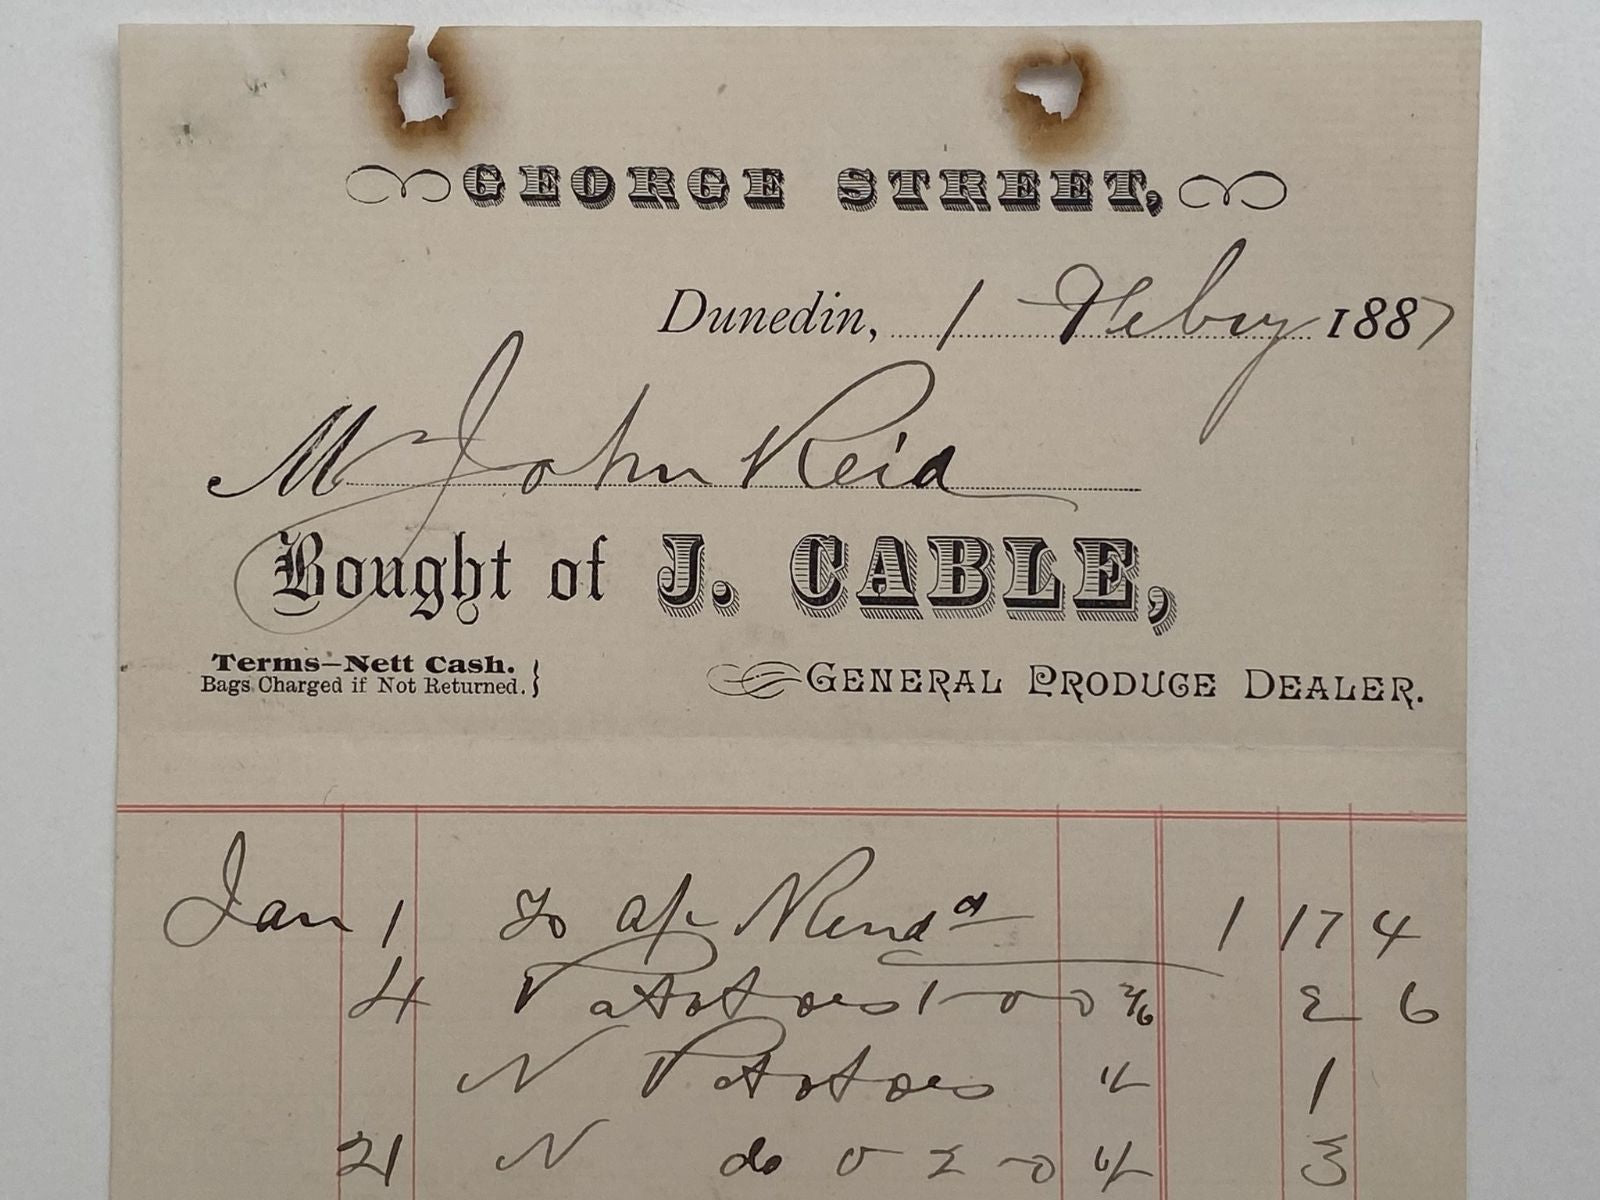 GEORGE STREET,
Dunedin, 1 Febry 1887
Mr John Reid
Bought of J. CABLE,
Terms—Nett Cash. }
Bags Charged if Not Returned.
GENERAL PRODUCE DEALER.
Jan 1 To a/c Rend d 1 17 4
4 Potatoes 1-0-0 2/6 2 6
N Potatoes 1
21 N do 3